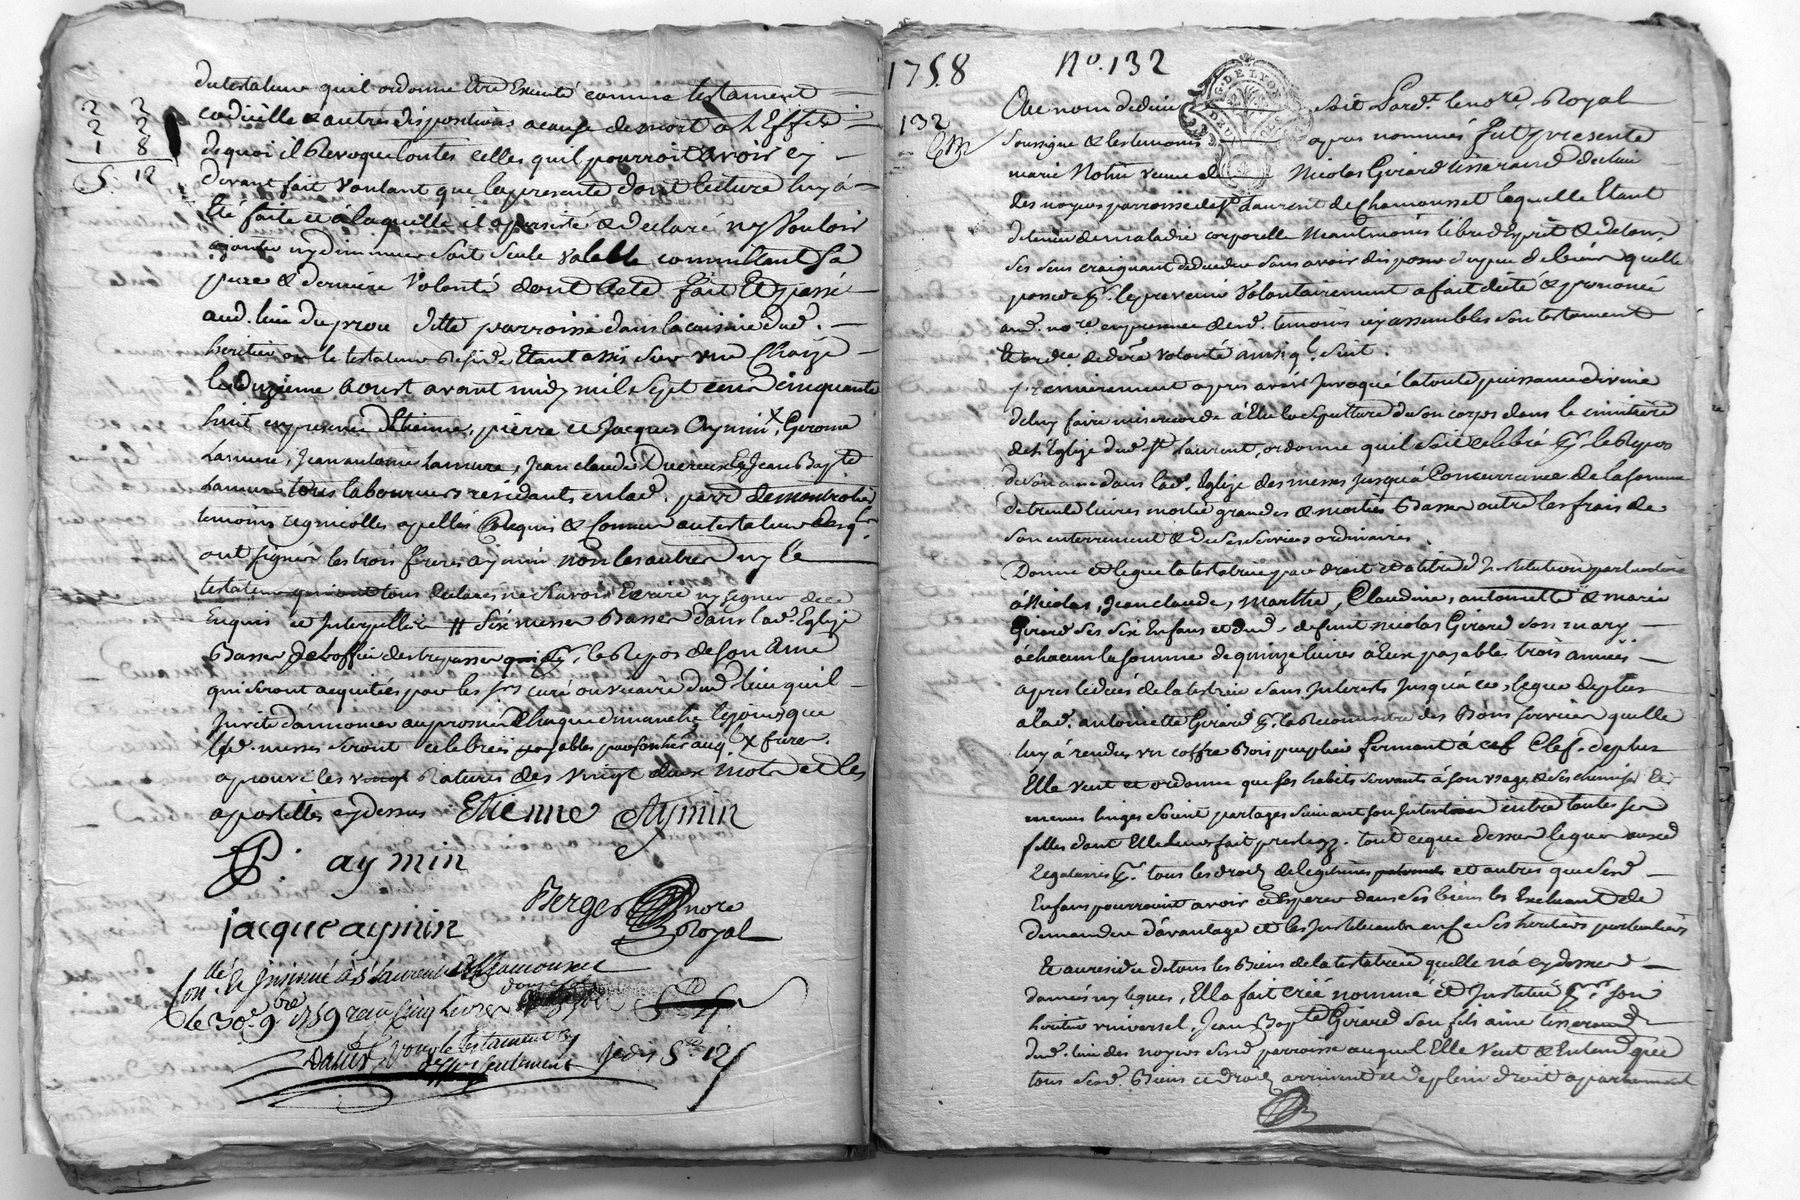 du testateur quil ordonne être Executé comme testament
codicille & autres dispositions a cause de mort a L'Effet
de quoi il Revoque toutes celles quil pourroit avoir cy
devant fait voulant que la presente dont lecture luy a
Eté faite et à laquelle il a persisté & declaré ny vouloir
ajouter ny diminuer soit seule valable contenant sa
pure & derniere volonté dont Acte fait Et passé
aud. lieu du ditte parroisse dans la cuisine dud.
heritier ou le testateur Reside Etant assis sur une Chaize
le aoust avant midy mil sept cent cinquante
huit en presence d'Etienne, pierre et Jacques Aymin, Gerome
Lamure, Jean antoine Lamure, Jean claude Ducreux Et Jean Bapte
Lamure tous laboureurs residants en lad. parr. de montrotier
temoins regnicolles apellés Requis & connus au testateur desqls
ont signés les trois freres aymin non les autres ny le
testateur qui ont tous declarés ne sçavoir Ecrire ny signer de ce
Enquis et Interpellés # Six messes Basses dans lad. Eglise
Basses de l'office des trepasses pr. le Repos de son Ame
qui seront acquitées par les srs curé ou vicaire dud. lieu quil
Invite d'annoncer au prosne Chaque dimanche les jours que
lesd. messes seront celebrées payables par sond. her. X freres
aprouvé les Ratures des vingt deux mots et les
apostilles cy dessus Etienne Aymin
P. aymin
Berger nore Royal
jacque aymin
Conllé et Insinué à St Laurent de Chamousset
le 30e 9bre 1759 reçu cinq livres douze sols
pour le testament
seulement
2 2
2 2
1 8
5. 12
1758 No. 132
132
Au nom de dieu soit Pardt. le nore. Royal
soussigné & les temoins apres nommés fut presente
marie veuve de Nicolas Girard tisserand du lieu
des noyers parroisse de St Laurent de Chamousset laquelle Etant
detenue de maladie corporelle neantmoins libre d'Esprit & de tous
ses sens craignant de deceder sans avoir disposé du peu de bien quelle
possede pr. le prevenir volontairement a fait dicté & prononcé
aud. nore. en presence desd. temoins icy assemblés son testament
Et ordce de dere volonté ainsy ql. suit.
premierement apres avoir Invoqué la toute puissance divine
de luy faire misericorde a élu la sepulture de son corps dans le cimitiere
de l'Eglize dud. St Laurent, ordonne quil soit celebré pr. le Repos
de son ame dans lad. Eglize des messes jusqu'à Concurrance de la somme
de trente livres moitié grandes & moitié Basses outre les frais de
son enterrement & de ses services ordinaires.
Donne et legue la testatrice par droit et a titre d'Institution particuliere
à Nicolas, Jean claude, marthe, Claudine, antoinette & marie
Girard ses six Enfans et dud. defunt nicolas Girard son mary
à chacun la somme de quinze livres à Eux payables trois années
apres le decés de la testatrice sans Interests jusqu'à ce, legue de plus
à lad. antoinette Girard pr. la Reconnoitre des Bons services quelle
luy à rendus un coffre Bois peuplier fermant à clef, de plus
Elle veut et ordonne que ses habits servants à son usage & ses chemises &
menus linges soient partagés suivant son Intention entre toutes ses
filles dont Elle leur fait prelegs. tout ce que dessus legué auxd.
legataires pr. tous les droits de legitimes et autres que sesd.
Enfans pourroient avoir et Esperer dans ses biens les Excluant de
demander d'avantage et les Instituant en ce ses heritiers particuliers
Et au residu de tous les Biens de la testatrice quelle n'a cy dessus
donnés ny legués, Ell a fait créé nommé et Institué pour son
heritier universel, Jean Bapte Girard son fils ainé tisserand
dud. lieu des noyers susd. parroisse auquel Elle veut & Entend que
tous sesd. Biens et droits arrivent et de plein droit apartiennent